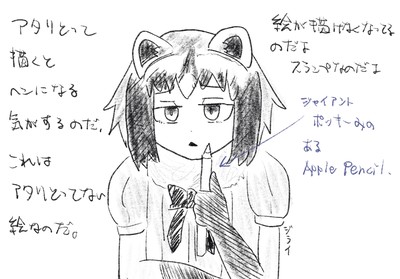 アタリとって
描くと
ヘンになる
気がするのだ.
これは
アタリとってない
絵なのだ。
絵が描けなくなってる
のだよ
スランプなのだよ
ジャイアント
ポッキーみの
ある
Apple Pencil.
ジライ